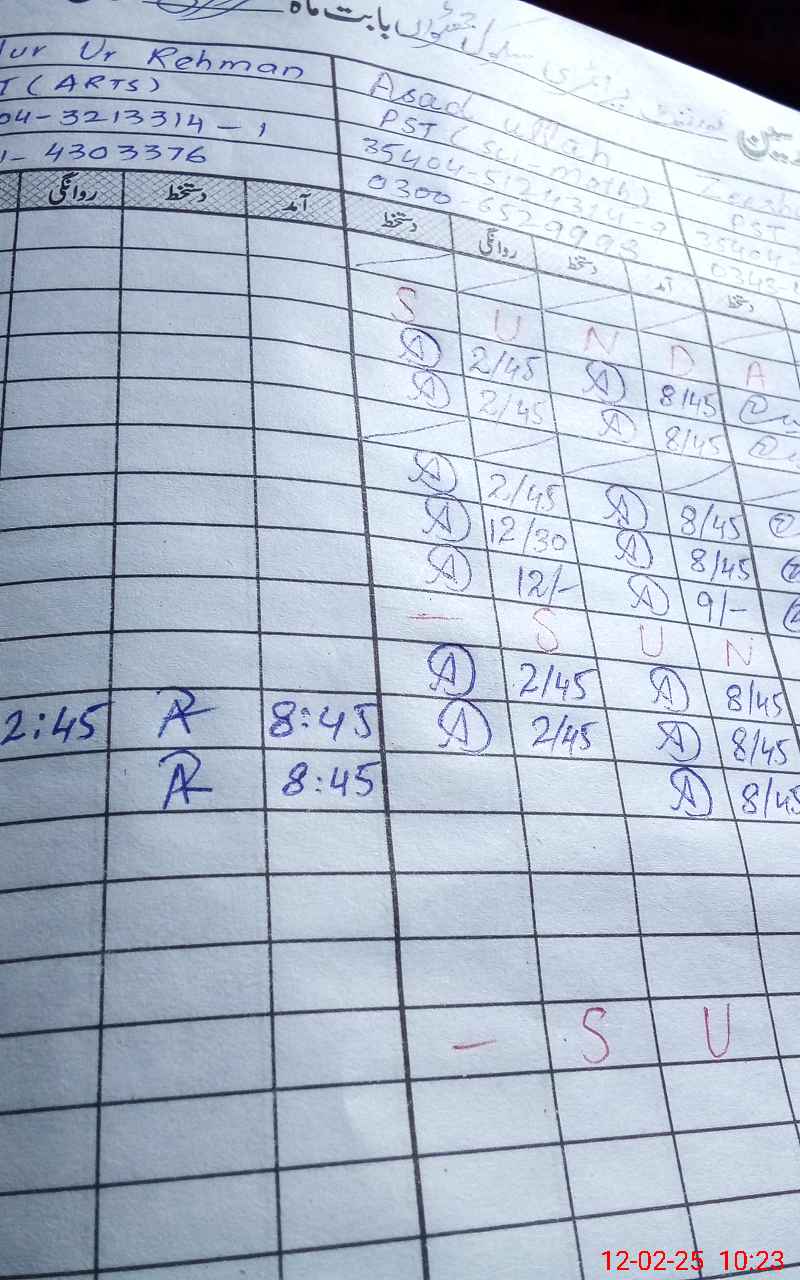 بابت ماہ
ur Ur Rehman
T (ARTS)
04-3213314-1
1-4303376
Asad ullah
PST (Sci-math)
0300-6529993
PST
35404
0343-
روانگی دستخط آمد دستخط روانگی دستخط آمد دستخط
S U N D A
A 2/45 A 8/45
A 2/45 A 8/45
A 2/45 A 8/45
A 12/30 A 8/45
A 12/- A 9/-
— S U N
A 2/45 A 8/45
2:45 AR 8:45 A 2/45 A 8/45
AR 8:45 A 8/45
— S U
12-02-25 10:23